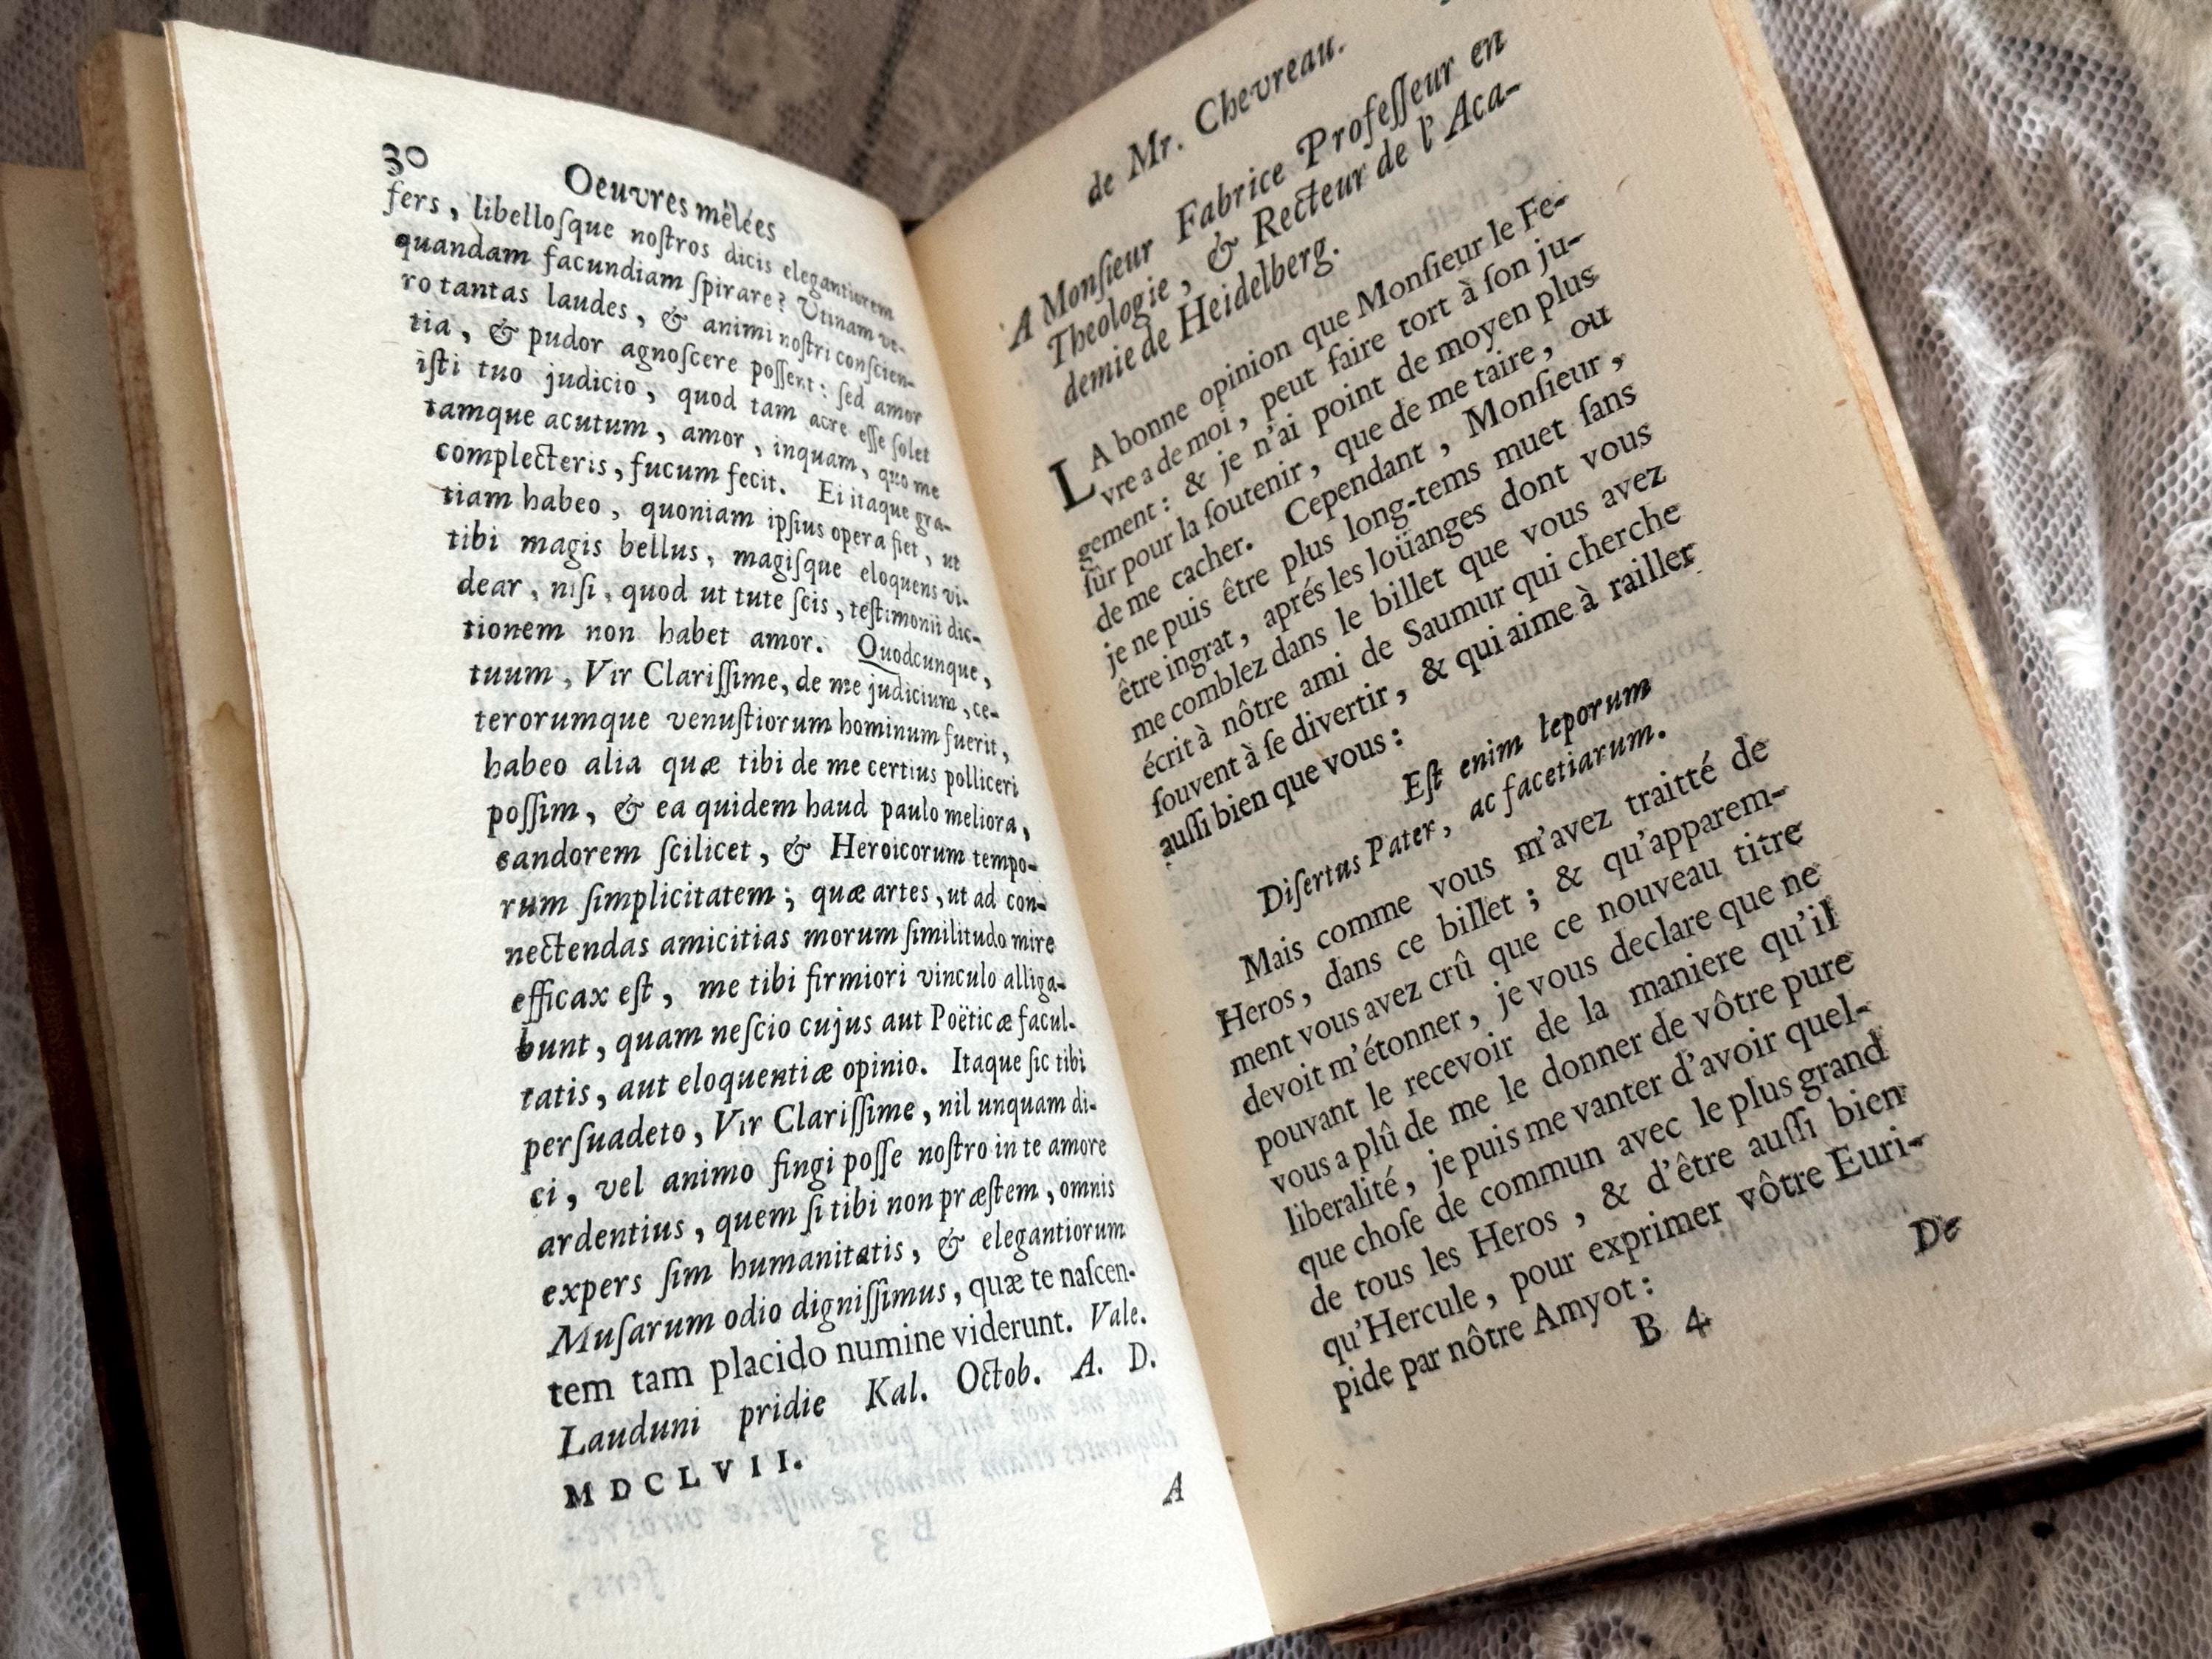 30 Oeuvres mêlées
fers, libelloſque noſtros dicis elegantiorem
quandam facundiam ſpirare? Utinam ve-
ro tantas laudes, & animi noſtri conſcien-
tia, & pudor agnoſcere poſſent: ſed amor
iſti tuo judicio, quod tam acre eſſe ſolet
tamque acutum, amor, inquam, quo me
complecteris, fucum fecit. Ei itaque gra-
tiam habeo, quoniam ipſius opera fiet, ut
tibi magis bellus, magiſque eloquens vi-
dear, niſi, quod ut tute ſcis, teſtimonii dic-
tionem non habet amor. Quodcunque,
tuum, Vir Clariſſime, de me judicium, ce-
terorumque venuſtiorum hominum fuerit,
habeo alia quæ tibi de me certius polliceri
poſſim, & ea quidem haud paulo meliora,
candorem ſcilicet, & Heroicorum tempo-
rum ſimplicitatem; quæ artes, ut ad con-
nectendas amicitias morum ſimilitudo mire
efficax eſt, me tibi firmiori vinculo alliga-
bunt, quam neſcio cujus aut Poëticæ facul-
tatis, aut eloquentiæ opinio. Itaque ſic tibi
perſuadeto, Vir Clariſſime, nil unquam di-
ci, vel animo fingi poſſe noſtro in te amore
ardentius, quem ſi tibi non præſtem, omnis
expers ſim humanitatis, & elegantiorum
Muſarum odio digniſſimus, quæ te naſcen-
tem tam placido numine viderunt. Vale.
Lauduni pridie Kal. Octob. A. D.
MDCLVII.
A
de Mr. Chevreau.
A Monſieur Fabrice Profeſſeur en
Theologie, & Recteur de l'Aca-
demie de Heidelberg.
LA bonne opinion que Monſieur le Fe-
vre a de moi, peut faire tort à ſon ju-
gement: & je n'ai point de moyen plus
ſûr pour la ſoutenir, que de me taire, ou
de me cacher. Cependant, Monſieur,
je ne puis être plus long-tems muet ſans
être ingrat, aprés les loüanges dont vous
me comblez dans le billet que vous avez
écrit à nôtre ami de Saumur qui cherche
ſouvent à ſe divertir, & qui aime à railler
auſſi bien que vous:
Eſt enim leporum
Diſertus Pater, ac facetiarum.
Mais comme vous m'avez traitté de
Heros, dans ce billet; & qu'apparem-
ment vous avez crû que ce nouveau titre
devoit m'étonner, je vous declare que ne
pouvant le recevoir de la maniere qu'il
vous a plû de me le donner de vôtre pure
liberalité, je puis me vanter d'avoir quel-
que choſe de commun avec le plus grand
de tous les Heros, & d'être auſſi bien
qu'Hercule, pour exprimer vôtre Euri-
pide par nôtre Amyot:
B 4 De